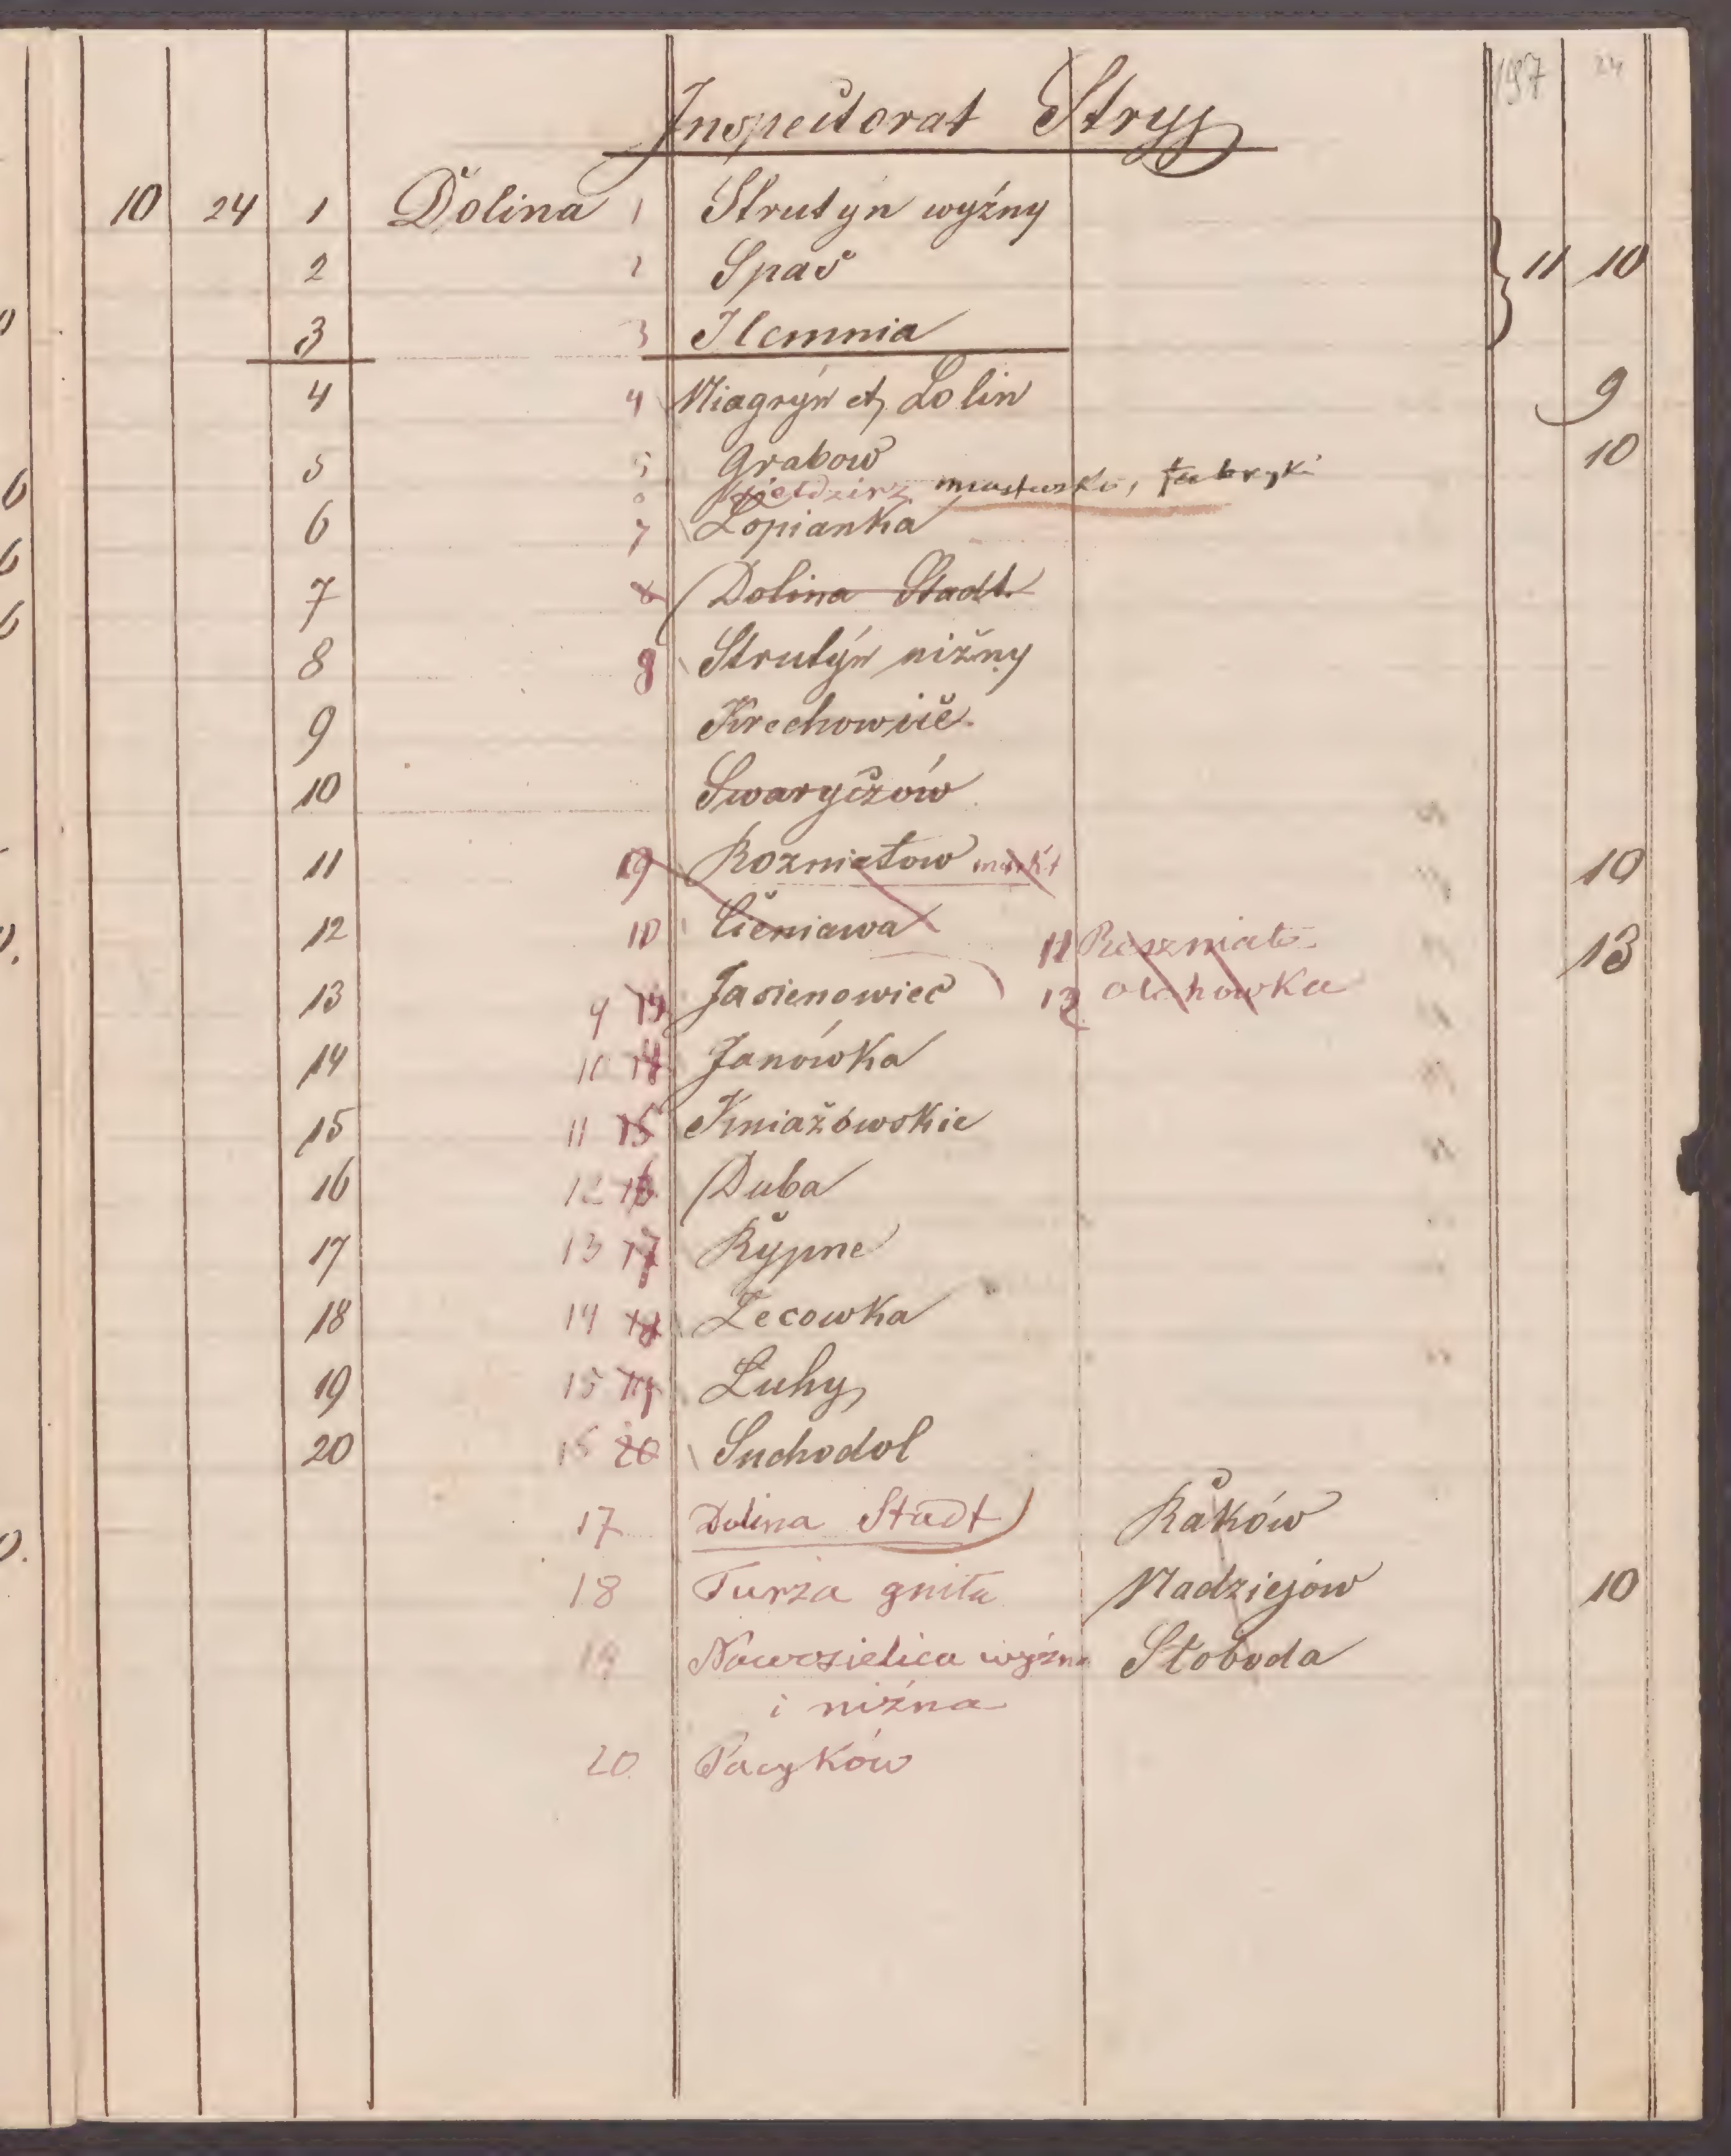 197 24
Inspectorat Stryj
10 24 1 Dolina 1 Strutyn wyźny
2 2 Spas 11 10
3 3 Ilemnia
4 4 Miagryn et Lolin 9
5 5 Grabow 10
miasteczko, fabryki
6 7 Lopianka
7 8 Dolina Stadt
8 8 Strutýn niżny
9 Krechowice
10 Swaryczów
11 Rozniatow markt 10
12 10 Cieniawa 11 Roszniato 13
13 9 13 Jasienowiec 12 Olchowka
14 10 14 Janówka
15 11 15 Kniażówskie
16 12 16 Duba
17 13 17 Rypne
18 14 18 Lecowka
19 15 19 Luhy
20 20 Suchodol
17 Dolina Stadt Raków
18 Turza gniła Nadziejów 10
19 Nowosielica wyżna Słoboda
i niżna
20 Pacyków